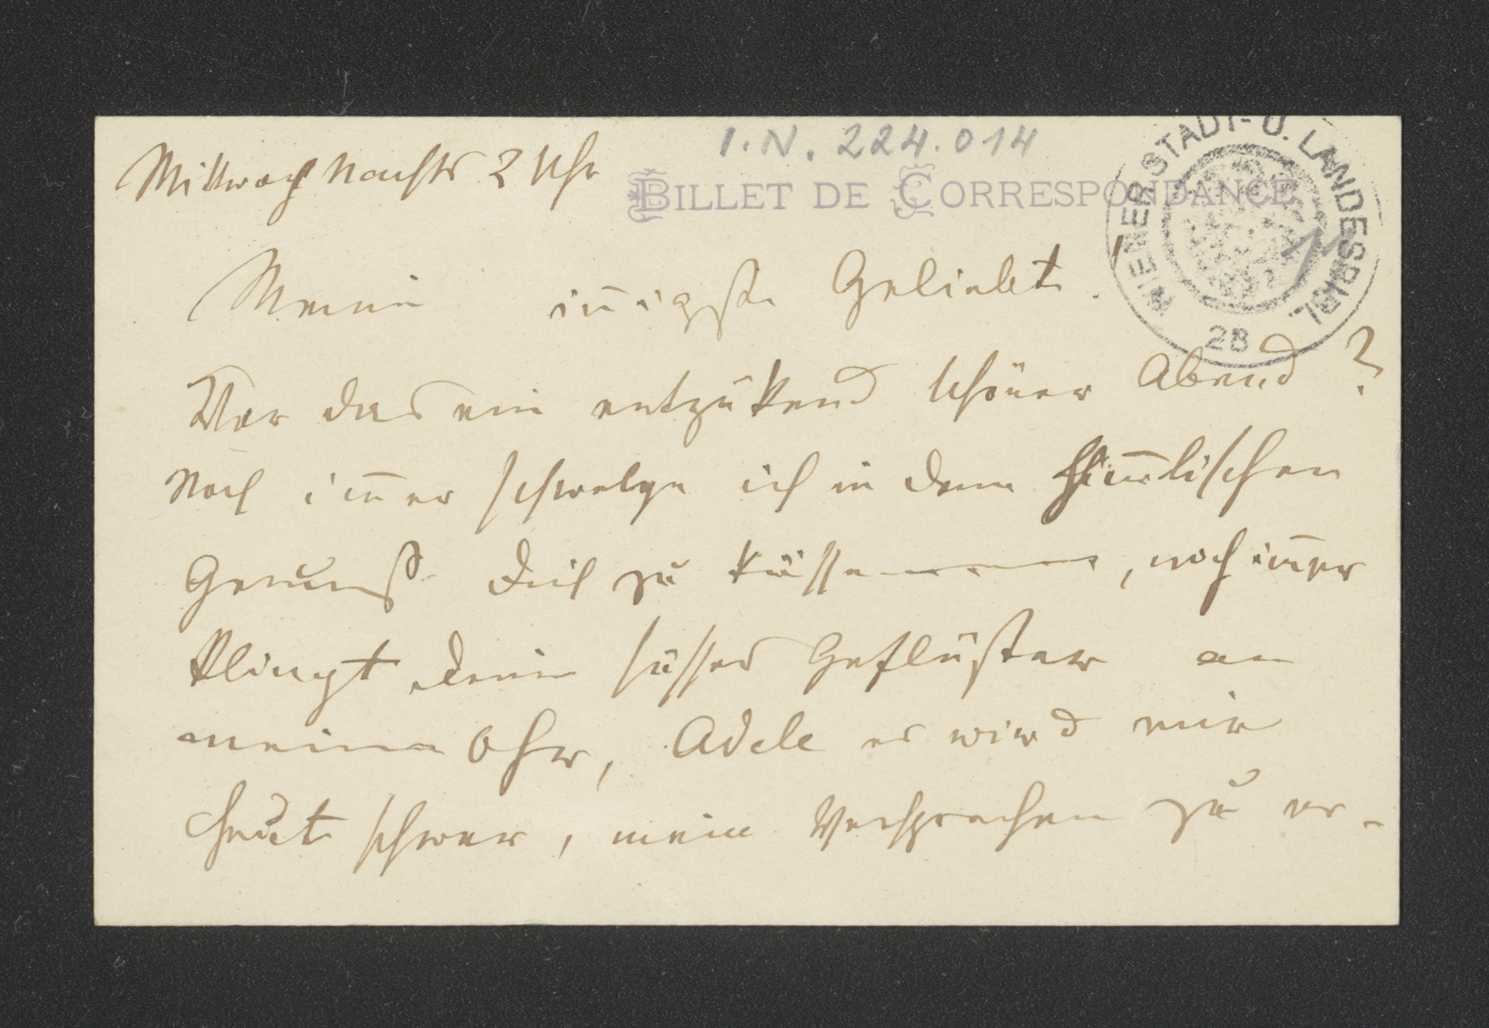 I.N. 224.014
Mittwoch Nachts 2 Uhr
BILLET DE CORRESPONDANCE
WIENER STADT- U. LANDESBIBL.
28
Meine innigste Geliebte!
War das ein entzükend schöner Abend?
Noch immer schwelge ich in dem himmlischen
Genuss Dich zu küssen, noch immer
klingt dein süsses Geflüster an
meinem Ohr, Adele es wird mir
heute schwer, mein Versprechen zu er-